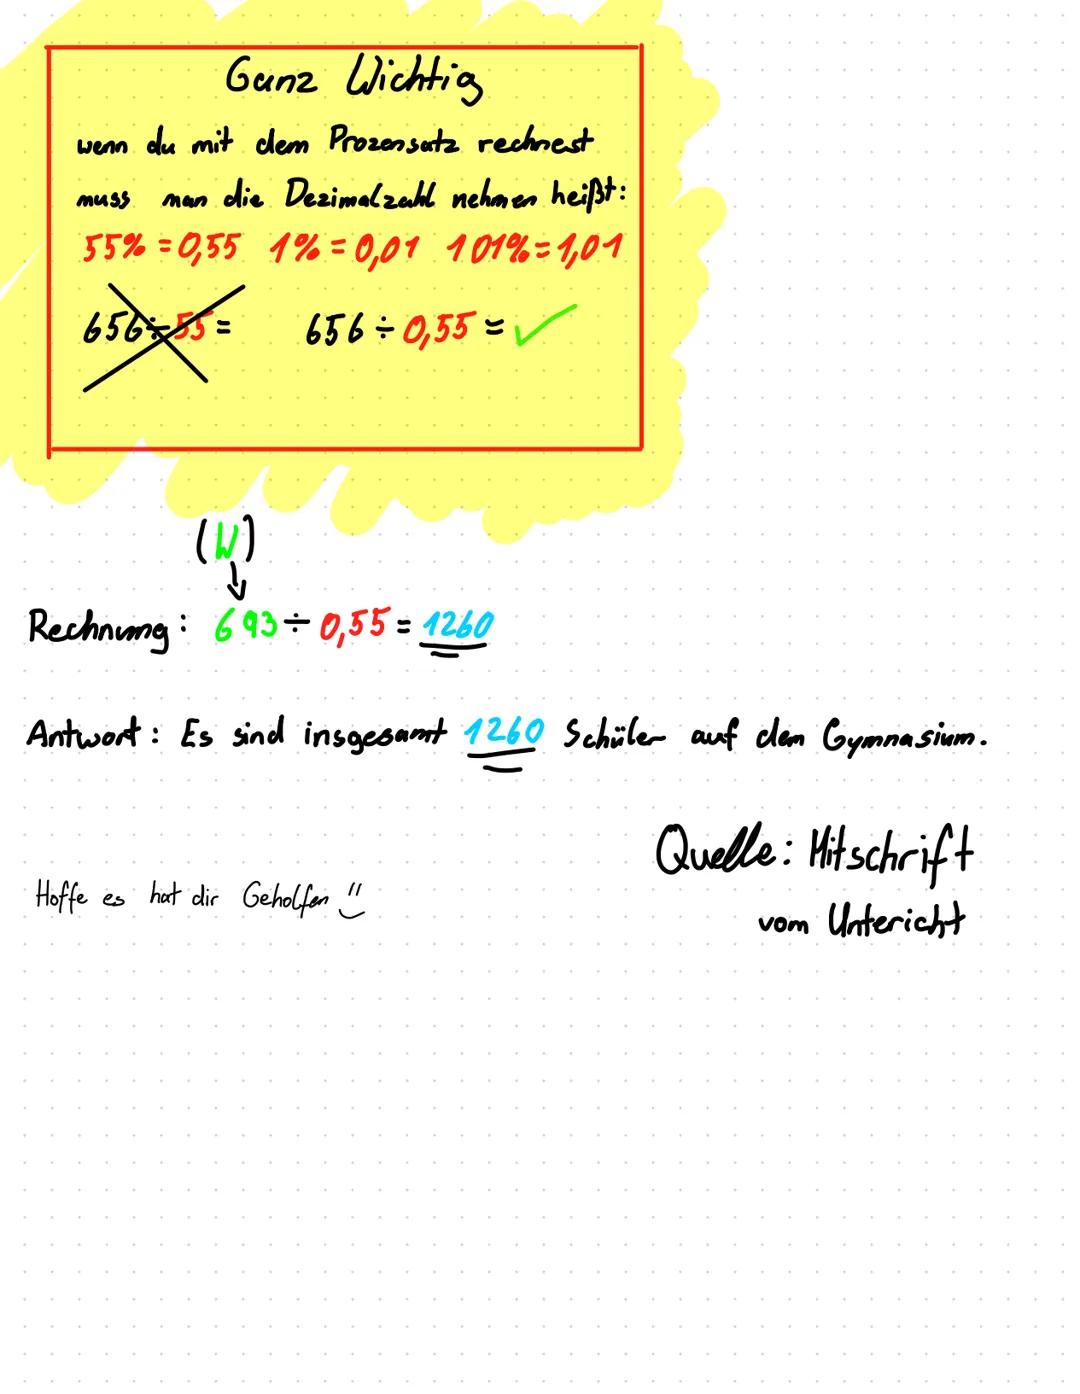 Ganz Wichtig
wenn du mit dem Prozensatz rechnest
muss man die Dezimalzahl nehmen heißt:
55% = 0,55 1% = 0,01 101% = 1,01
656 ÷ 55 = 656 ÷ 0,55 = ✓
(W)
↓
Rechnung: 693 ÷ 0,55 = 1260
Antwort: Es sind insgesamt 1260 Schüler auf dem Gymnasium.
Quelle: Mitschrift
vom Untericht
Hoffe es hat dir Geholfen